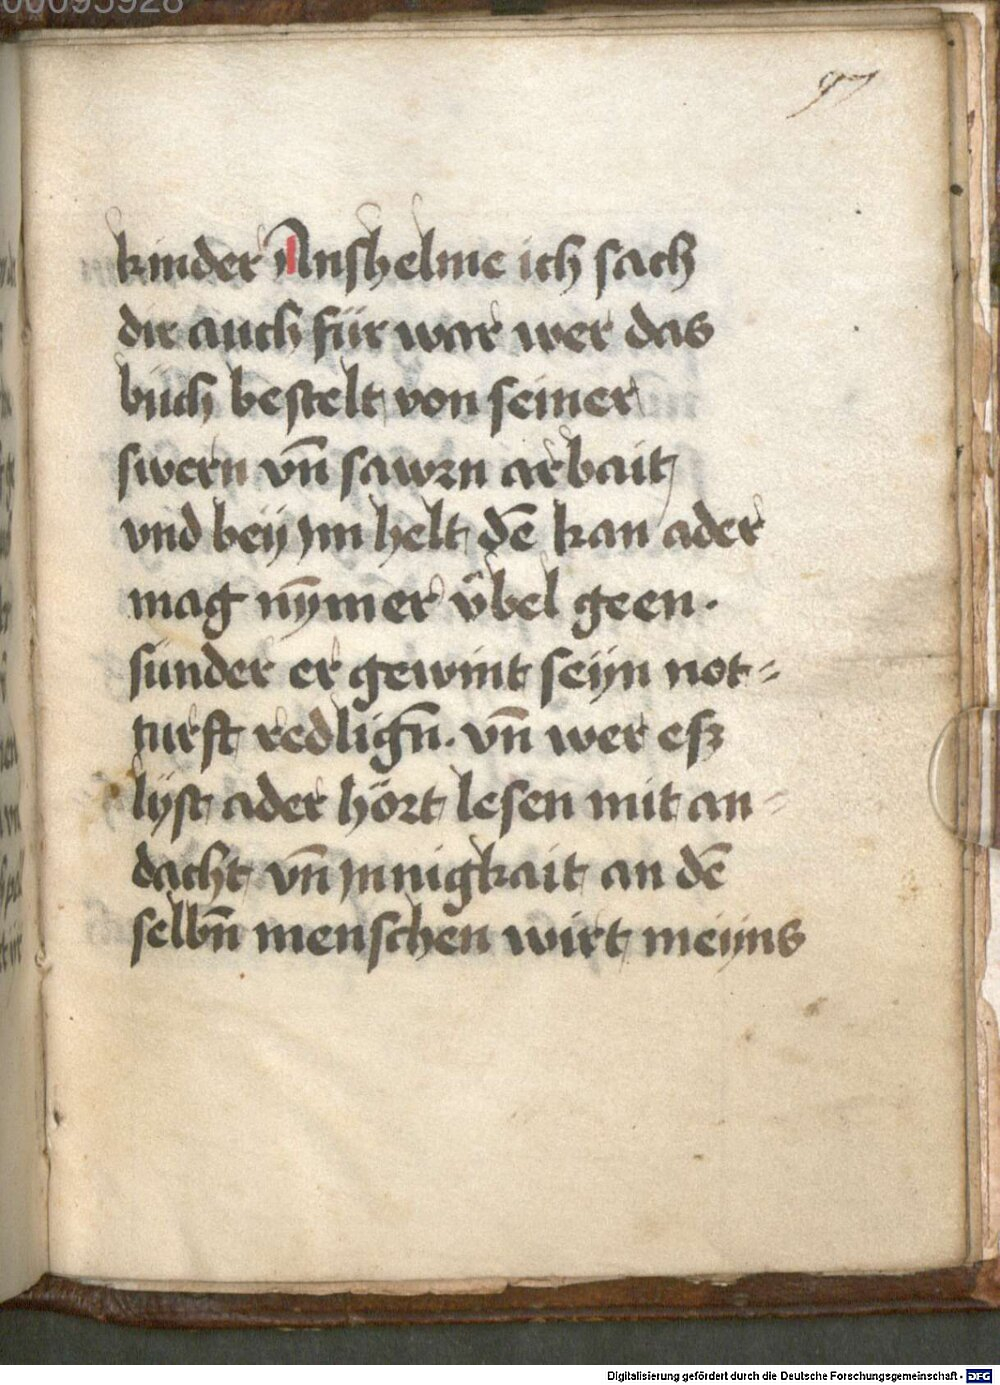 00095928
97
kinder Anshelme ich sach
dir auch für war wer das
büch bestelt von seiner
swern vn̄ sawrn arbait
vnd beÿ ym helt dē kan ader
mag nȳmer v̂bel geen.
sünder er gewint seÿn not=
turft redlign̄. vn̄ wer esz
lÿst ader hört lesen mit an=
dacht vn̄ ynnigkait an dē
selbn̄ menschen wirt meÿns
Digitalisierung gefördert durch die Deutsche Forschungsgemeinschaft - DFG